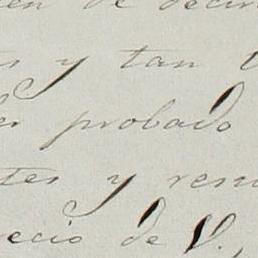 en de decir
s y tan
er probado
tes y rem
ecio de V.,